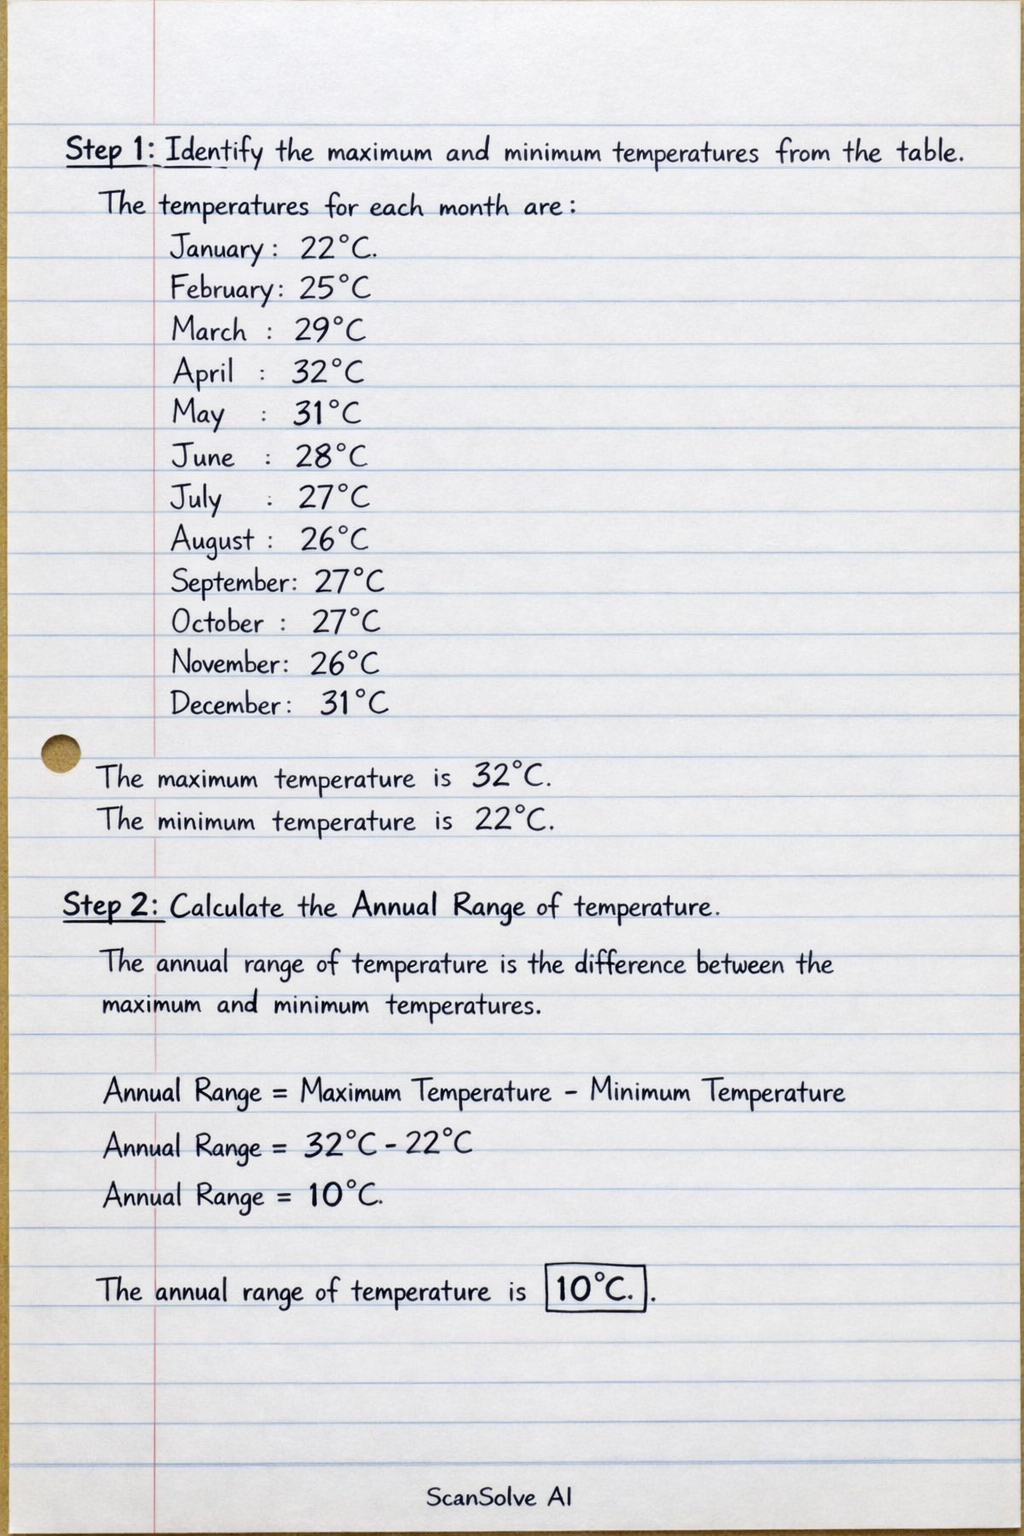 Step 1: Identify the maximum and minimum temperatures from the table.
The temperatures for each month are:
January: 22°C.
February: 25°C
March : 29°C
April : 32°C
May : 31°C
June : 28°C
July : 27°C
August : 26°C
September: 27°C
October : 27°C
November: 26°C
December: 31°C
The maximum temperature is 32°C.
The minimum temperature is 22°C.
Step 2: Calculate the Annual Range of temperature.
The annual range of temperature is the difference between the
maximum and minimum temperatures.
Annual Range = Maximum Temperature - Minimum Temperature
Annual Range = 32°C - 22°C
Annual Range = 10°C.
The annual range of temperature is 10°C. .
ScanSolve AI